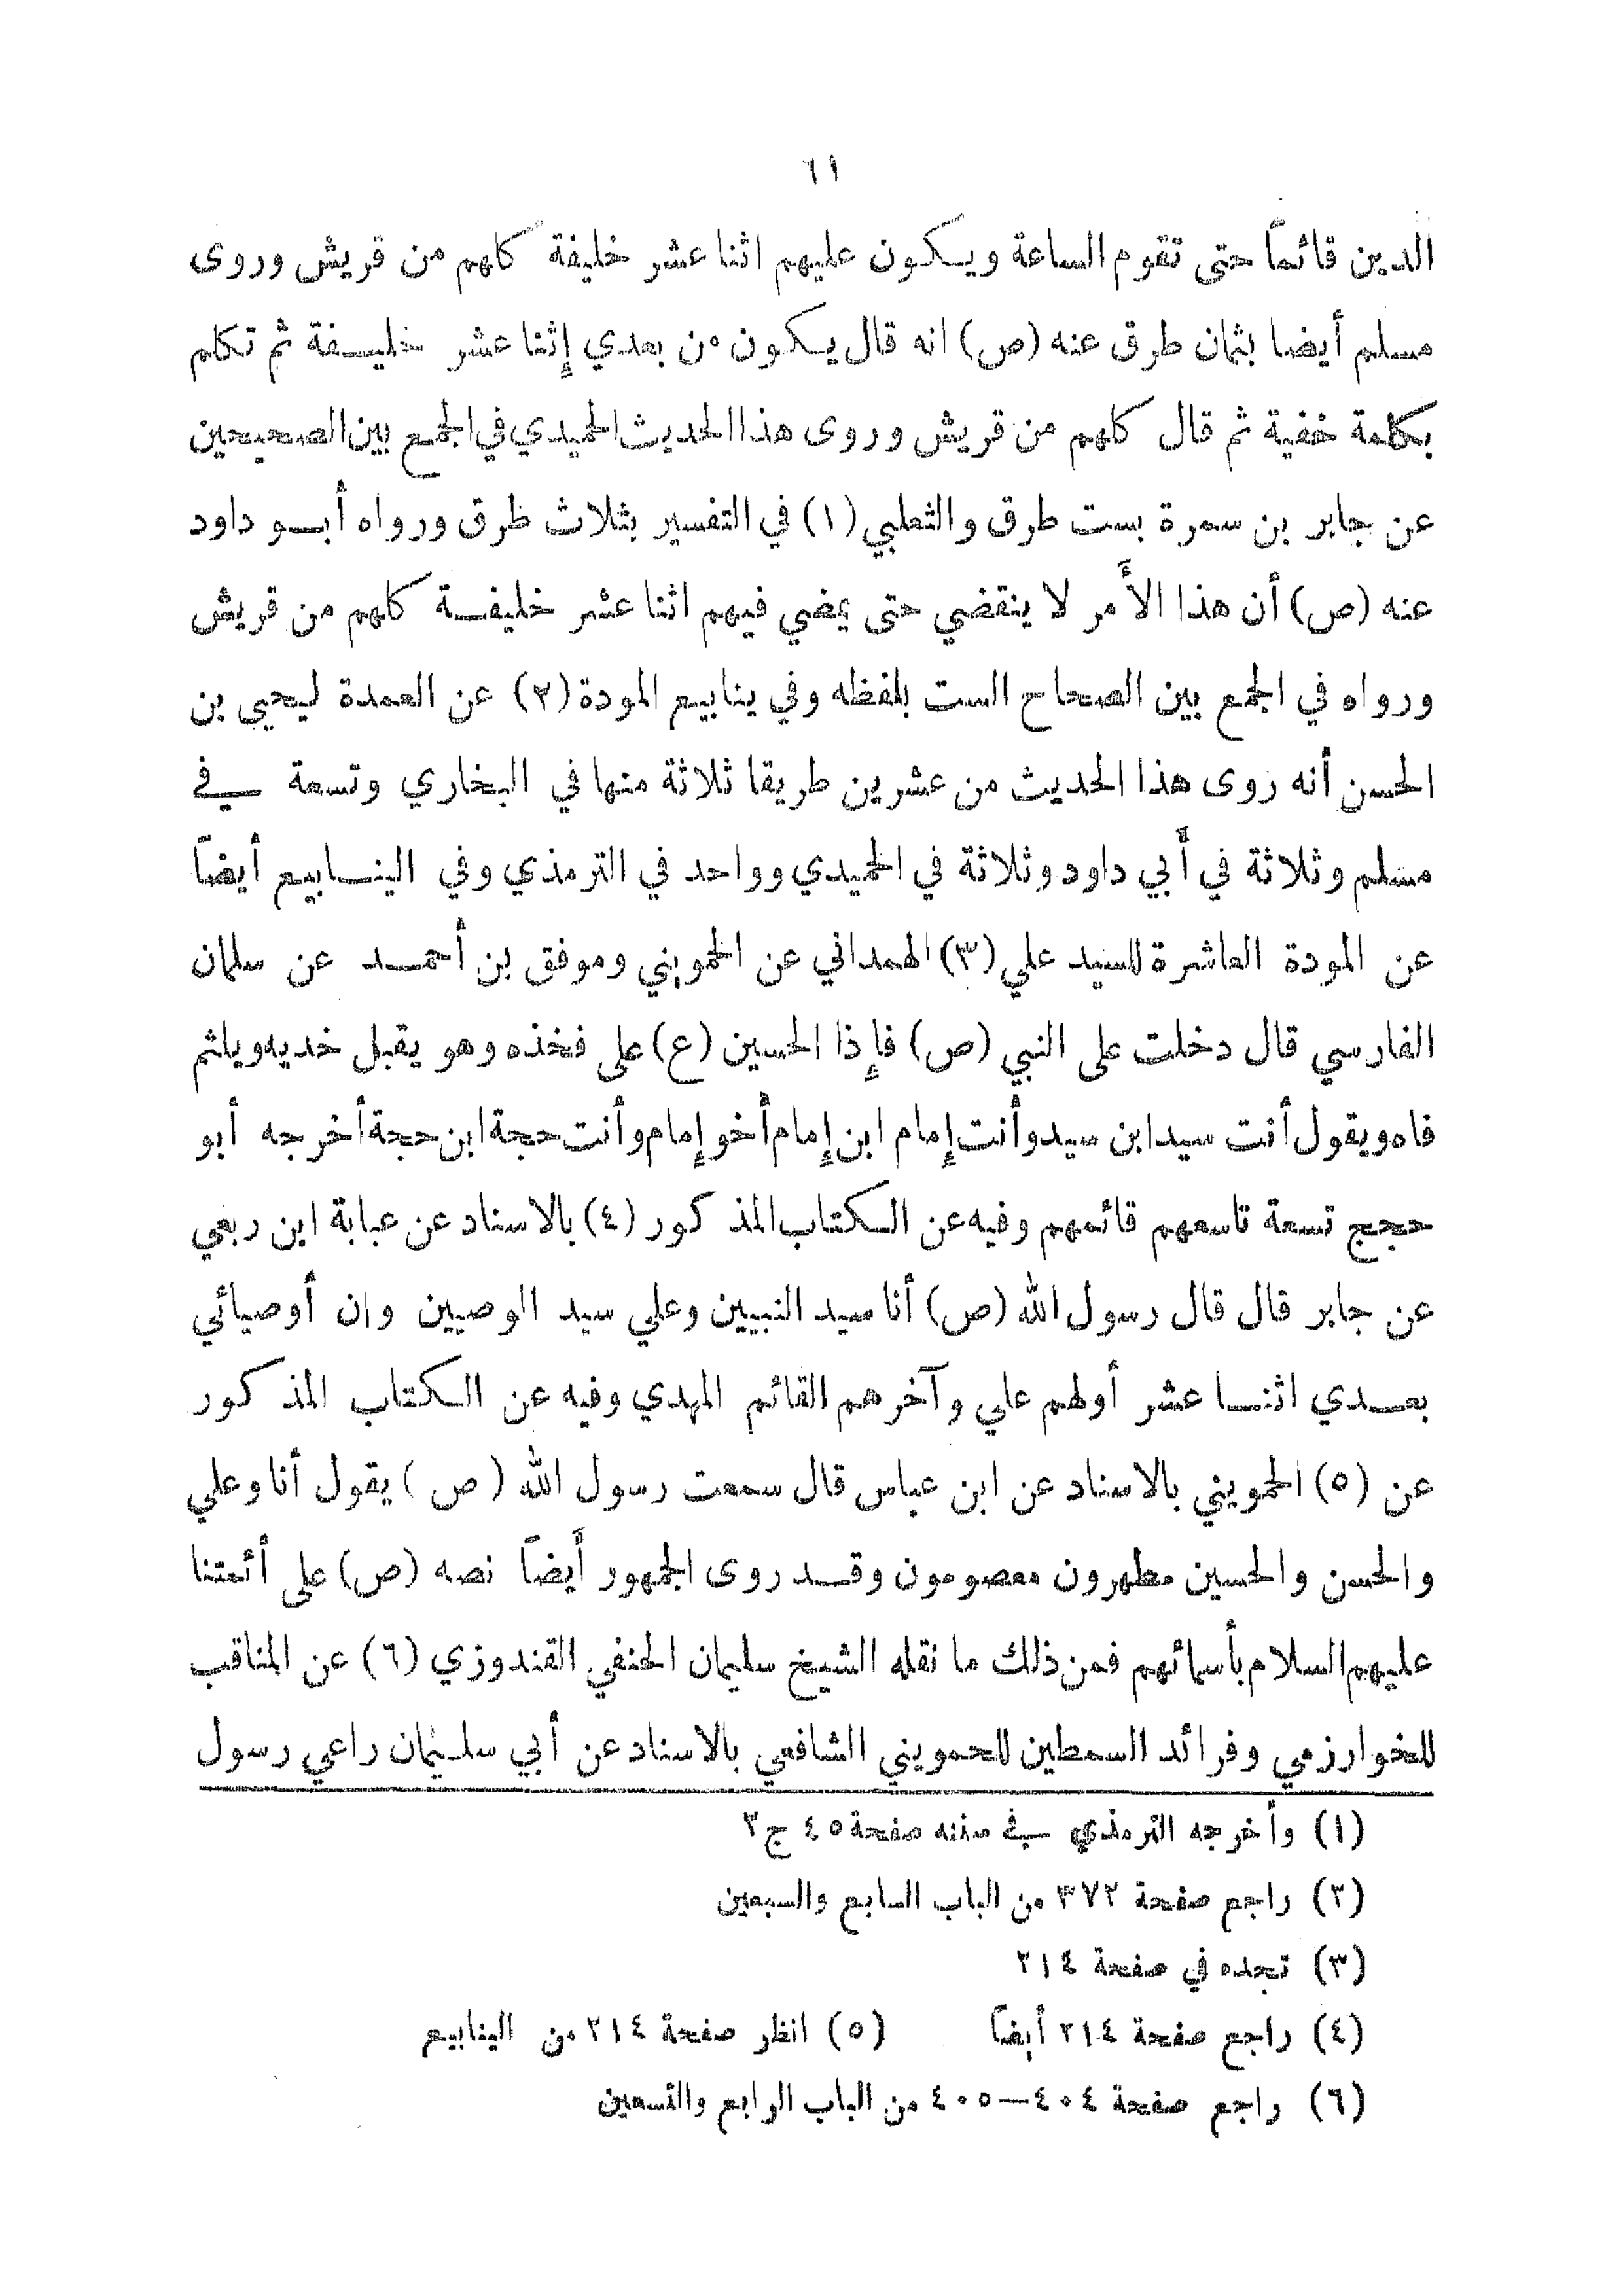 ٦١
الدين قائماً حتى تقوم الساعة ويكون عليهم اثنا عشر خليفة كلهم من قريش وروى
مسلم أيضا بثمان طرق عنه (ص) انه قال يكون من بعدي إثنا عشر خليفة ثم تكلم
بكلمة خفية ثم قال كلهم من قريش وروى هذا الحديث الحميدي في الجمع بين الصحيحين
عن جابر بن سمرة بست طرق والثعلبي (١) في التفسير بثلاث طرق ورواه أبو داود
عنه (ص) أن هذا الأمر لا ينقضي حتى يمضي فيهم اثنا عشر خليفة كلهم من قريش
ورواه في الجمع بين الصحاح الست بلفظه وفي ينابيع المودة (٢) عن العمدة ليحيى بن
الحسن أنه روى هذا الحديث من عشرين طريقا ثلاثة منها في البخاري وتسعة في
مسلم وثلاثة في أبي داود وثلاثة في الحميدي وواحد في الترمذي وفي الينابيع أيضاً
عن المودة العاشرة للسيد علي (٣) الهمداني عن الحمويني وموفق بن أحمد عن سلمان
الفارسي قال دخلت على النبي (ص) فإذا الحسين (ع) على فخذه وهو يقبل خديه ويلثم
فاه ويقول أنت سيد ابن سيد وأنت إمام ابن إمام أخو إمام وأنت حجة ابن حجة أخرجه أبو
حجج تسعة تاسعهم قائمهم وفيه عن الكتاب المذكور (٤) بالاسناد عن عبابة ابن ربعي
عن جابر قال قال رسول الله (ص) أنا سيد النبيين وعلي سيد الوصيين وإن أوصيائي
بعدي اثنا عشر أولهم علي وآخرهم القائم المهدي وفيه عن الكتاب المذكور
عن (٥) الحمويني بالاسناد عن ابن عباس قال سمعت رسول الله (ص) يقول أنا وعلي
والحسن والحسين مطهرون معصومون وقد روى الجمهور أيضاً نصه (ص) على أئمتنا
عليهم السلام بأسمائهم فمن ذلك ما نقله الشيخ سليمان الحنفي القندوزي (٦) عن المناقب
للخوارزمي وفرائد السمطين للحمويني الشافعي بالاسناد عن أبي سليمان راعي رسول
(١) وأخرجه الترمذي في سننه صفحة ٤٥ ج ٢
(٢) راجع صفحة ٣٧٢ من الباب السابع والسبعين
(٣) تجده في صفحة ٢١٤
(٤) راجع صفحة ٢١٤ أيضاً (٥) انظر صفحة ٢١٤ من الينابيع
(٦) راجع صفحة ٤٠٤—٤٠٥ من الباب الرابع والتسعين